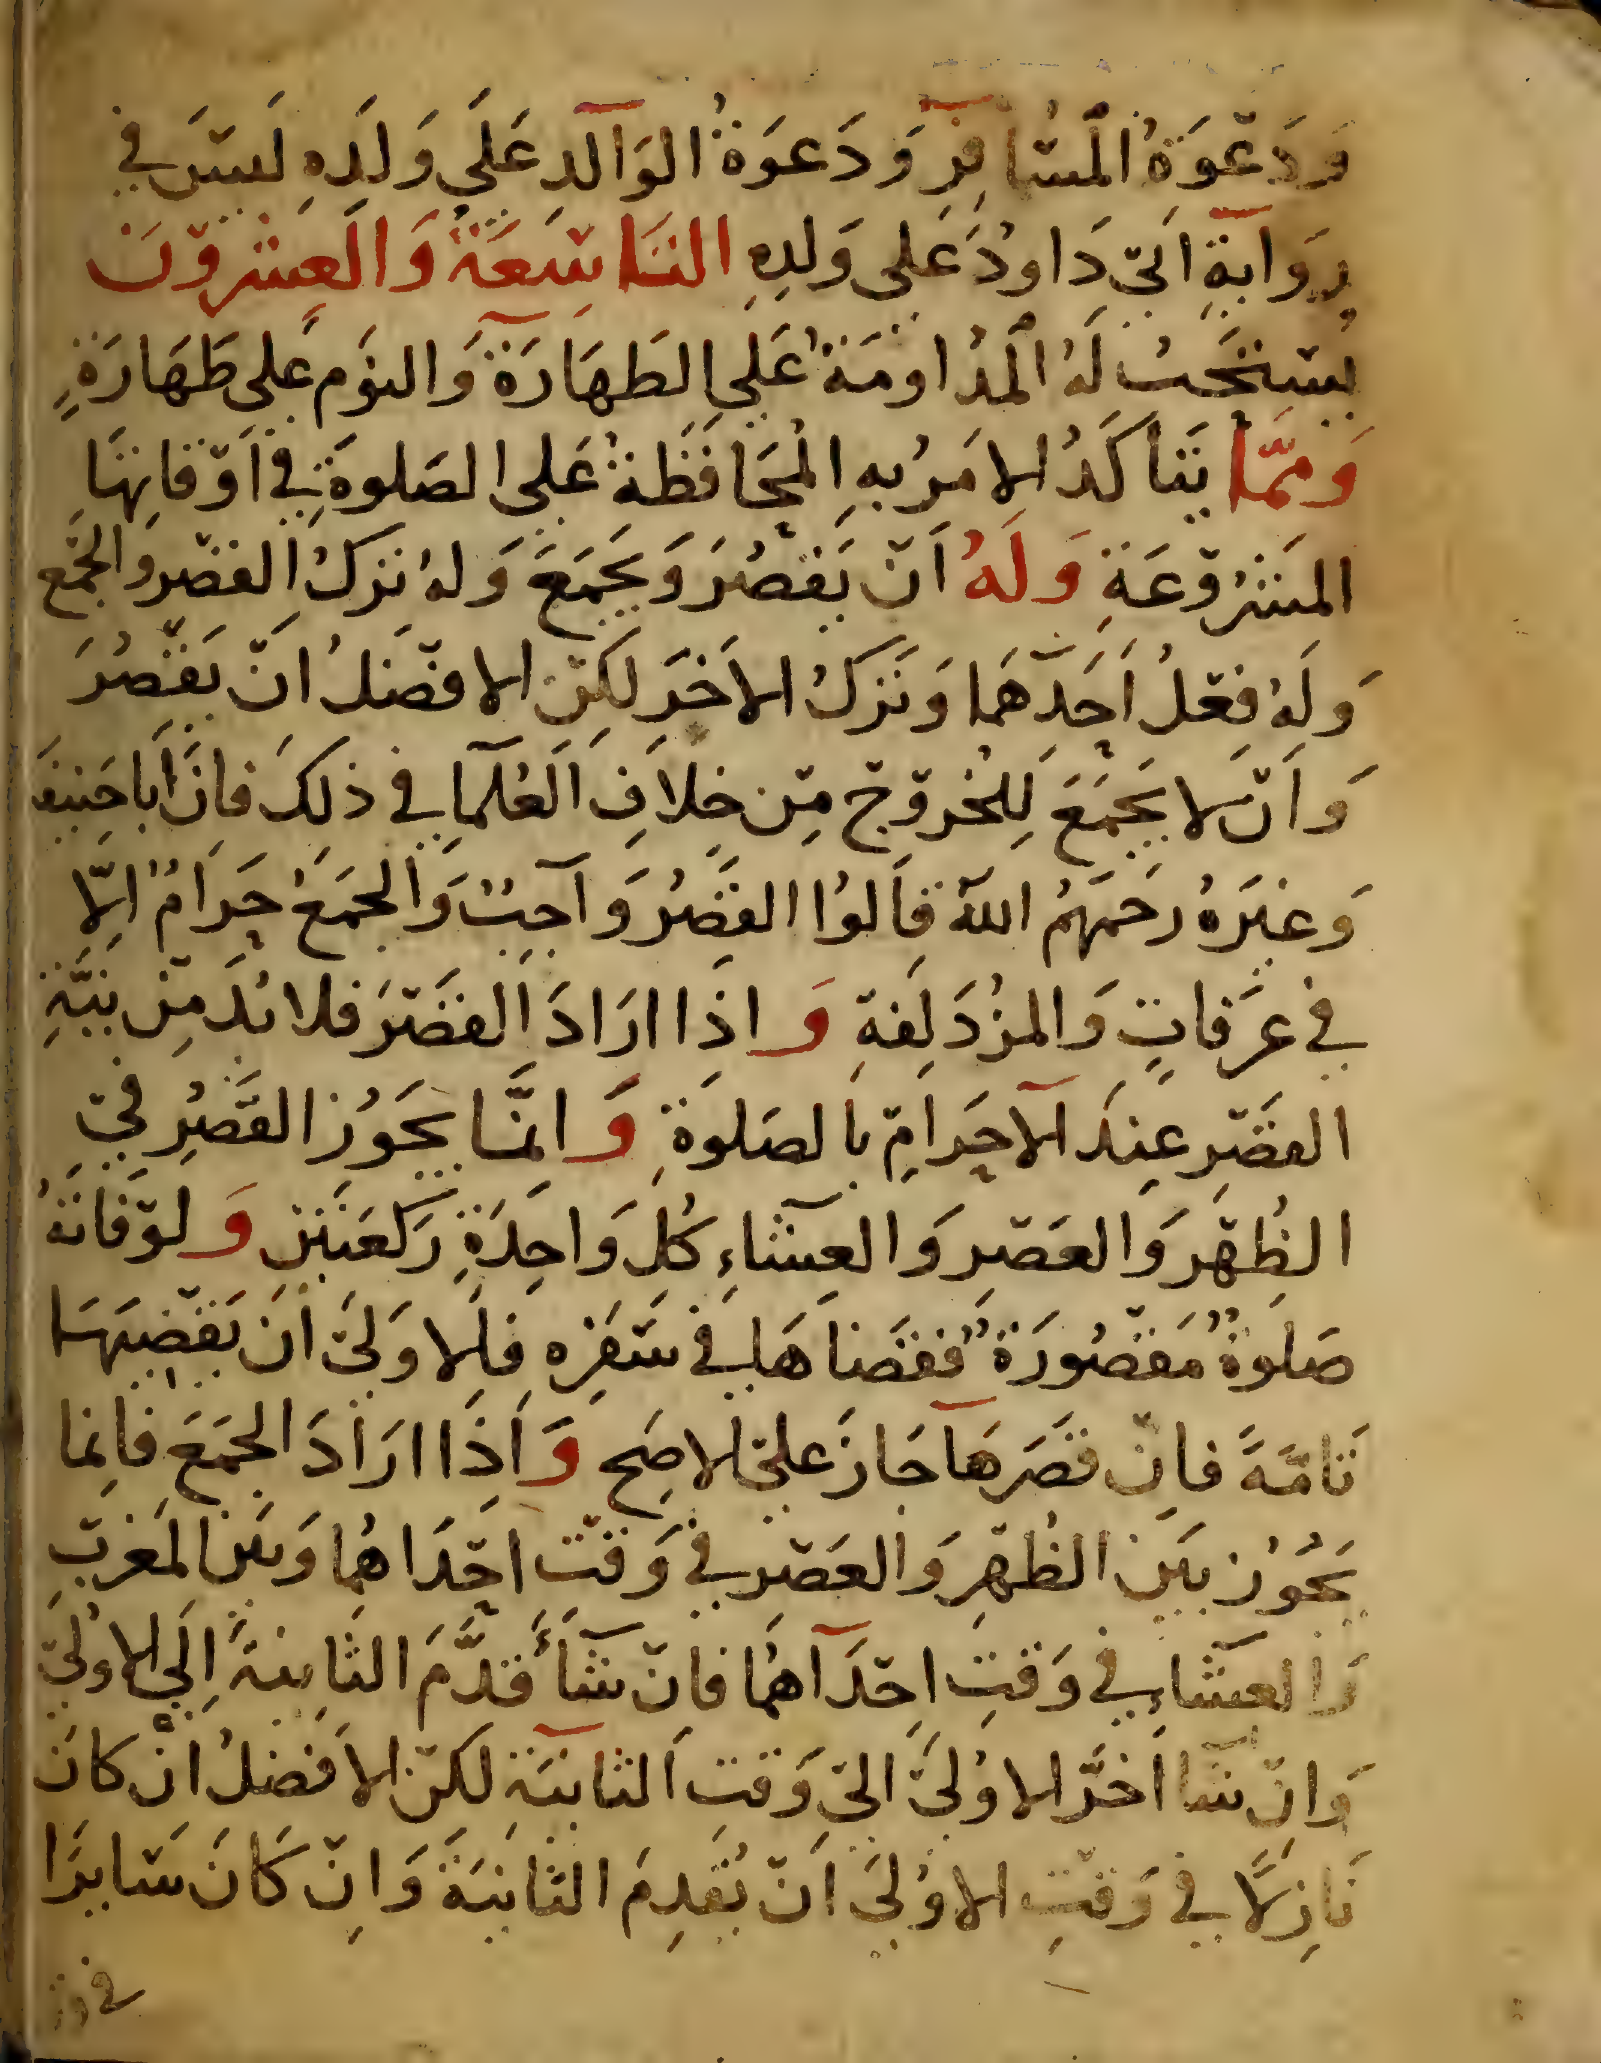 وَدَعْوَةُ الْمُسَافِرِ وَدَعوَةُ الوَالدِ عَلَي وَلَدِهِ لَيسَ في
رِوَايةِ ابي دَاودَ عَلى وَلدِهِ التَاسِعَةُ وَالعِشروْنَ
يُستَحَبُ لَهُ الْمُدَاومَةُ عَلي الطَهَارَة وَالنوَم عَلى طَهَارَةٍ
وَممَّا يَتَاكَدُ الامَرُ بهِ الْمُحَافَظَةُ عَلى الصَلوةِ في اَوْقاتِهَا
المَشرُوْعَةِ وَلَهُ اَنْ يَقصُرَ وَيَجمَعَ وَلهُ تَركُ القصْرِ وَالجَمْع
وَلَهُ فِعْلُ اَحَدِهَمَا وَتَركُ الاخَرَ لكِنْ الافضَلُ اَنْ يَقْصُرَ
وَاَنْ لا يَجمَعَ لِلخُروْجِ مِنْ خِلاَفِ العُلَمآ في ذلِكَ فاِنَّ اَبا حَنيفَة
وَغيَرهُ رَحمَهُم اللهُ قاَلوُا القَصْرُ وَاجبٌ وَالجمَعُ حَرَامٌ اِلّا
في عَرَفاتٍ وَالمزُدَلِفةِ وَاذَا ارَادَ القَصْرَ فلا بُدَ مِنْ نيَّةِ
القَصْرِ عِندَ الاحِرَامِ بالصَلوَةِ وَانمَّا يَجَوُز القَصْرُ فيْ
الظُهْرِ وَالعَصْرِ وَالعِشَاءِ كُلَ وَاحِدَةٍ رَكعَتَين وَلوْ فاتَتهُ
صَلوةٌ مَقْصُورَةٌ فقضَاهَا في سَفَرِهِ فَالاوَلىَ اَن يَقْضِيَهَا
تَامّةً فانْ قصَرَهَا جَازَ عَلىْ الاصَحِ وَاِذَا ارَادَ الجَمَعَ فَاِنما
يَجُوُز بيَن الظُهْرِ وَالعَصْرِ في وَقتْ احِدَاهُما وَبيَن المَغربْ
وَالعشَاءِ في وَقتِ احِدَاهُما فانْ شآءَ قدَّمَ الثَانيةَ اِلَي الاوُلىَ
وَانْ شآ اَخَرَّ الاوُلىَ الىْ وَقتِ الثانيَة لكنّ الاَفضلُ انْ كانَ
نَازِلًا في وَقتِ الاوُلىَ اَنْ يُقدِمَ الثانيَةَ وَانْ كَانَ سَايرًا
في وقت